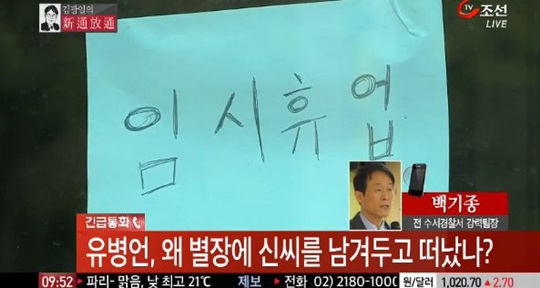 김광일의
新通放通
TV조선
LIVE
임시휴업
백기종
전 수서경찰서 강력팀장
긴급통화
유병언, 왜 별장에 신씨를 남겨두고 떠났나?
09:52 ▶파리- 맑음, 낮 최고 21℃ 제보 ▶전화 02) 2180-100 원/달러 1,020.70 ▲2.70